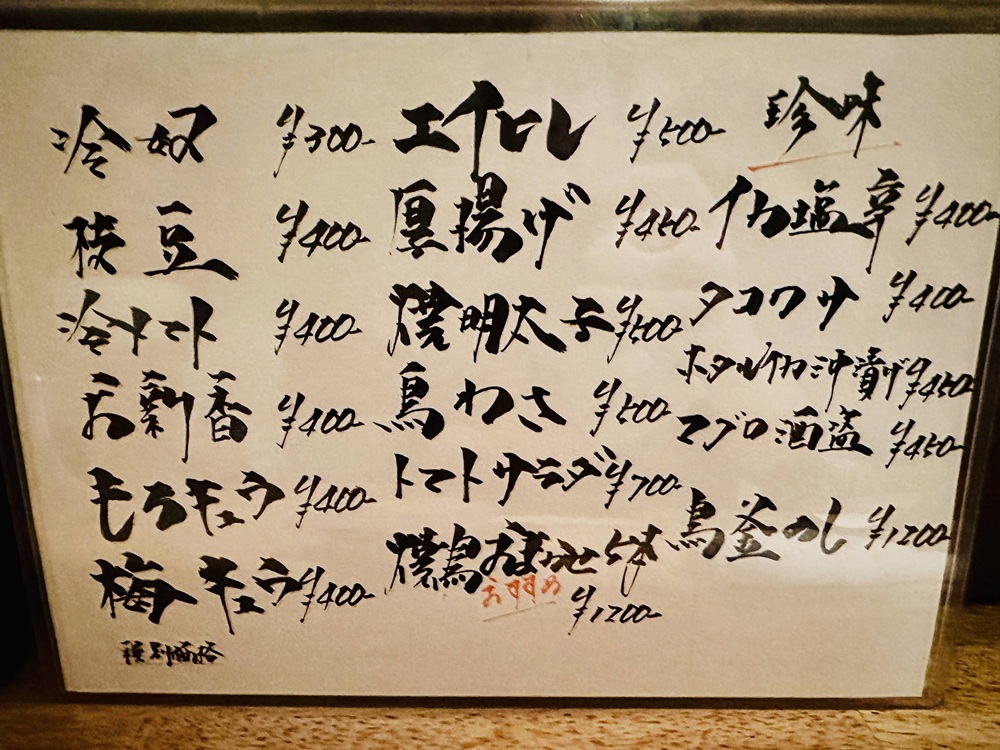 冷奴 ¥300-
枝豆 ¥400-
冷トマト ¥400-
お新香 ¥400-
もろキュウ ¥400-
梅キュウ ¥400-
税別価格
エイヒレ ¥500-
厚揚げ ¥450-
焼明太子 ¥500-
鳥わさ ¥500-
トマトサラダ ¥700-
焼鳥おまかせ5本
おすすめ
¥1200-
珍味
イカ塩辛 ¥400-
タコワサ ¥400-
ホタルイカ沖漬け ¥450-
マグロ酒盗 ¥450-
鳥釜めし ¥1200-